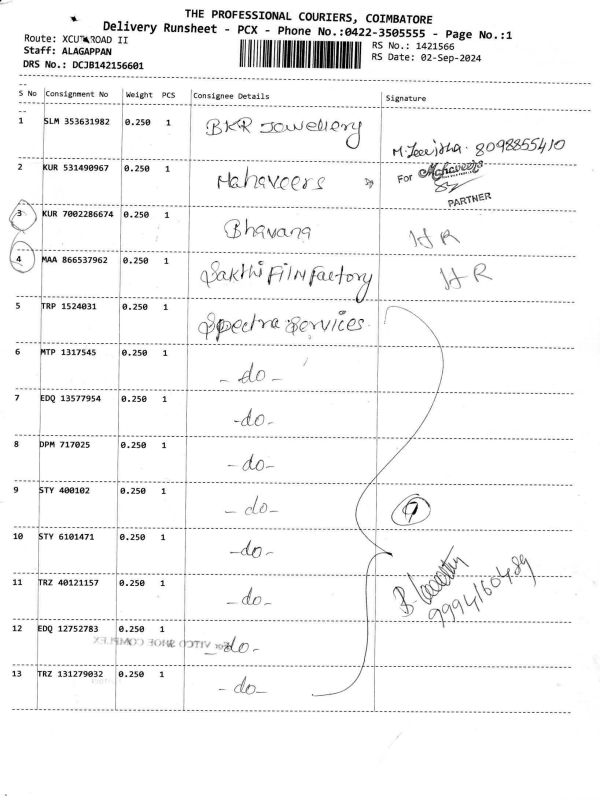 THE PROFESSIONAL COURIERS, COIMBATORE
Delivery Runsheet - PCX - Phone No.:0422-3505555 - Page No.:1
Route: XCUT ROAD II
Staff: ALAGAPPAN
DRS No.: DCJB142156601
RS No.: 1421566
RS Date: 02-Sep-2024
S No Consignment No Weight PCS Consignee Details Signature
1 SLM 353631982 0.250 1 BKR Jowellery 8098855410
2 KUR 531490967 0.250 1 Mahaveers For Mahaveers PARTNER
3 KUR 7002286674 0.250 1 Bhavana HR
4 MAA 866537962 0.250 1 Sakthi Film Factory HR
5 TRP 1524031 0.250 1 Spectra Services
6 MTP 1317545 0.250 1 - do -
7 EDQ 13577954 0.250 1 - do -
8 DPM 717025 0.250 1 - do -
9 STY 400102 0.250 1 - do - 9
10 STY 6101471 0.250 1 - do -
11 TRZ 40121157 0.250 1 - do - 9994160489
12 EDQ 12752783 0.250 1 - do -
For VITCO SHOE COMPLEX
13 TRZ 131279032 0.250 1 - do -